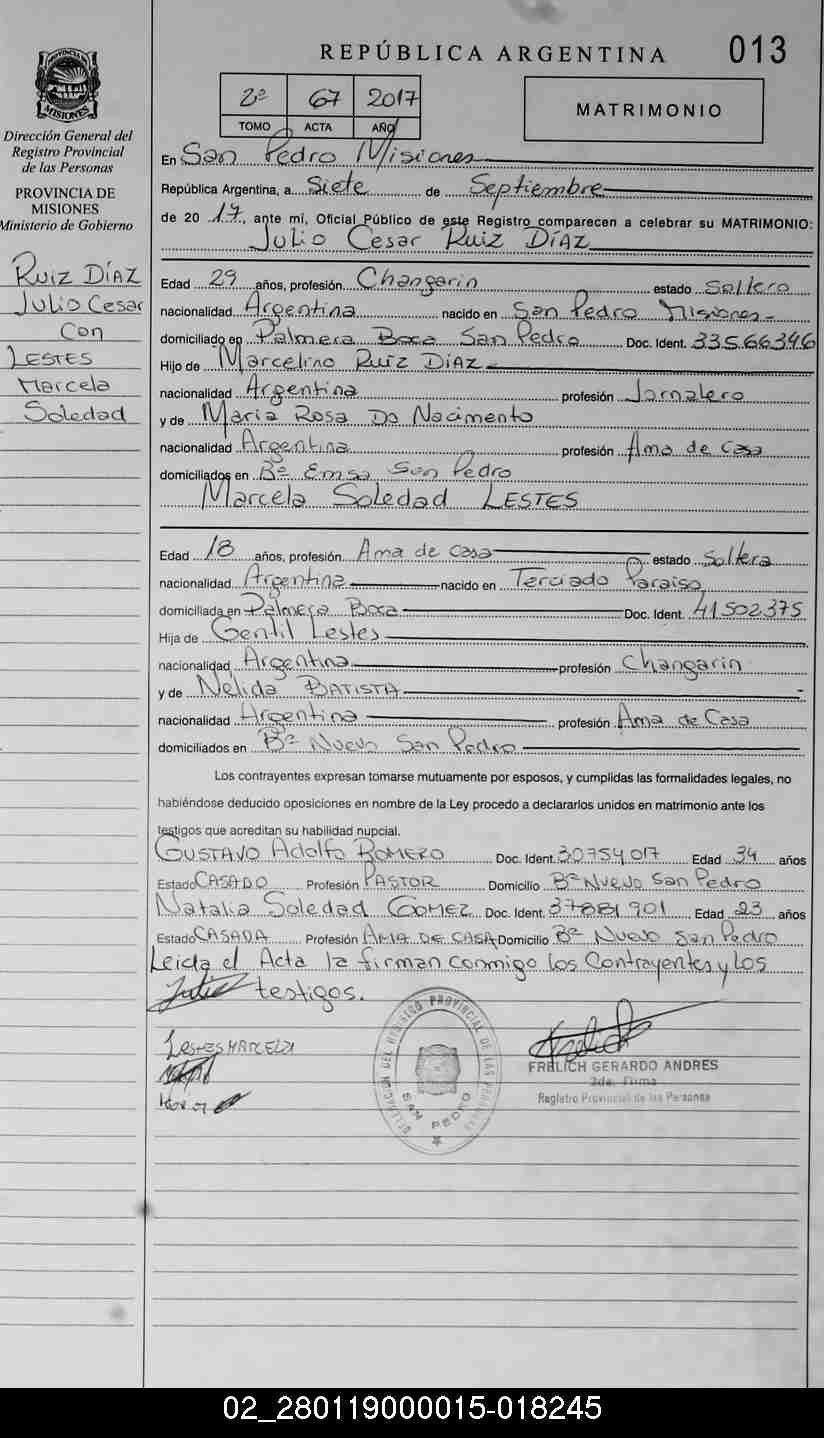 REPÚBLICA ARGENTINA 013
2º 67 2017
TOMO ACTA AÑO
MATRIMONIO
PROVINCIA DE MISIONES
Dirección General del
Registro Provincial
de las Personas
PROVINCIA DE
MISIONES
Ministerio de Gobierno
RUIZ DÍAZ
Julio Cesar
Con
LESTES
Marcela
Soledad
En San Pedro Misiones
República Argentina, a Siete de Septiembre
de 20 17, ante mí, Oficial Público de este Registro comparecen a celebrar su MATRIMONIO:
Julio Cesar Ruiz DÍAZ
Edad 29 años, profesión Changarin estado Soltero
nacionalidad Argentina nacido en San Pedro Misiones
domiciliado en Palmera Boca San Pedro Doc. Ident. 33566346
Hijo de Marcelino Ruiz DÍAZ
nacionalidad Argentina profesión Jornalero
y de Maria Rosa Do Nacimento
nacionalidad Argentina profesión Ama de Casa
domiciliados en Bº Emsa San Pedro
Marcela Soledad LESTES
Edad 18 años, profesión Ama de Casa estado Soltera
nacionalidad Argentina nacido en Terciado Paraiso
domiciliada en Palmera Boca Doc. Ident. 41502375
Hija de Gentil Lestes
nacionalidad Argentina profesión Changarin
y de Nelida BATISTA
nacionalidad Argentina profesión Ama de Casa
domiciliados en Bº Nuevo San Pedro
Los contrayentes expresan tomarse mutuamente por esposos, y cumplidas las formalidades legales, no
habiéndose deducido oposiciones en nombre de la Ley procedo a declararlos unidos en matrimonio ante los
testigos que acreditan su habilidad nupcial.
GUSTAVO Adolfo ROMERO Doc. Ident. 30754017 Edad 34 años
Estado CASADO Profesión PASTOR Domicilio Bº Nuevo San Pedro
Natalia Soledad GOMEZ Doc. Ident. 37881901 Edad 23 años
Estado CASADA Profesión AMA DE CASA Domicilio Bº Nuevo San Pedro
Leida el Acta la firman conmigo los Contrayentes y los
testigos.
Julio
LESTES MARCELA
DELEGACION DEL REGISTRO PROVINCIAL DE LAS PERSONAS
SAN PEDRO
FRELICH GERARDO ANDRES
2da. Firma
Registro Provincial de las Personas
02_280119000015-018245